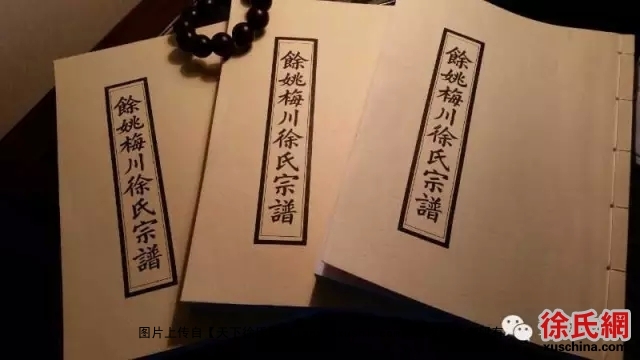 餘姚梅川徐氏宗譜
餘姚梅川徐氏宗譜
餘姚梅川徐氏宗譜
图片上传自【天下
徐氏網
xuschina.com